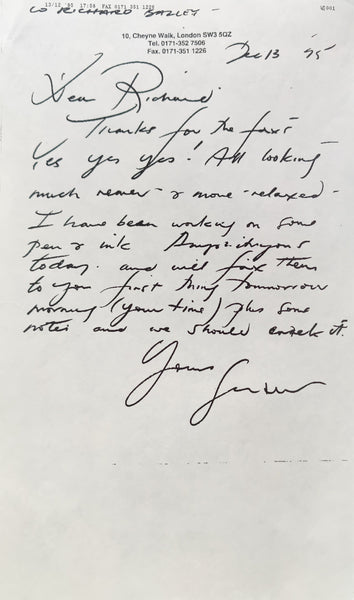 13/12 '95 17:06 FAX 0171 351 1226
to RICHARD BAILEY -
001
10, Cheyne Walk, London SW3 5QZ
Tel. 0171-352 7506
Fax. 0171-351 1226
Dec 13 '95
Dear Richard
Thanks for the faxes
Yes yes yes! All looking
much nearer & more relaxed -
I have been working on some
pen & ink
today. and will fax them
to you first thing tommorrow
morning (your time) plus some
notes and we should crack it.
Yours